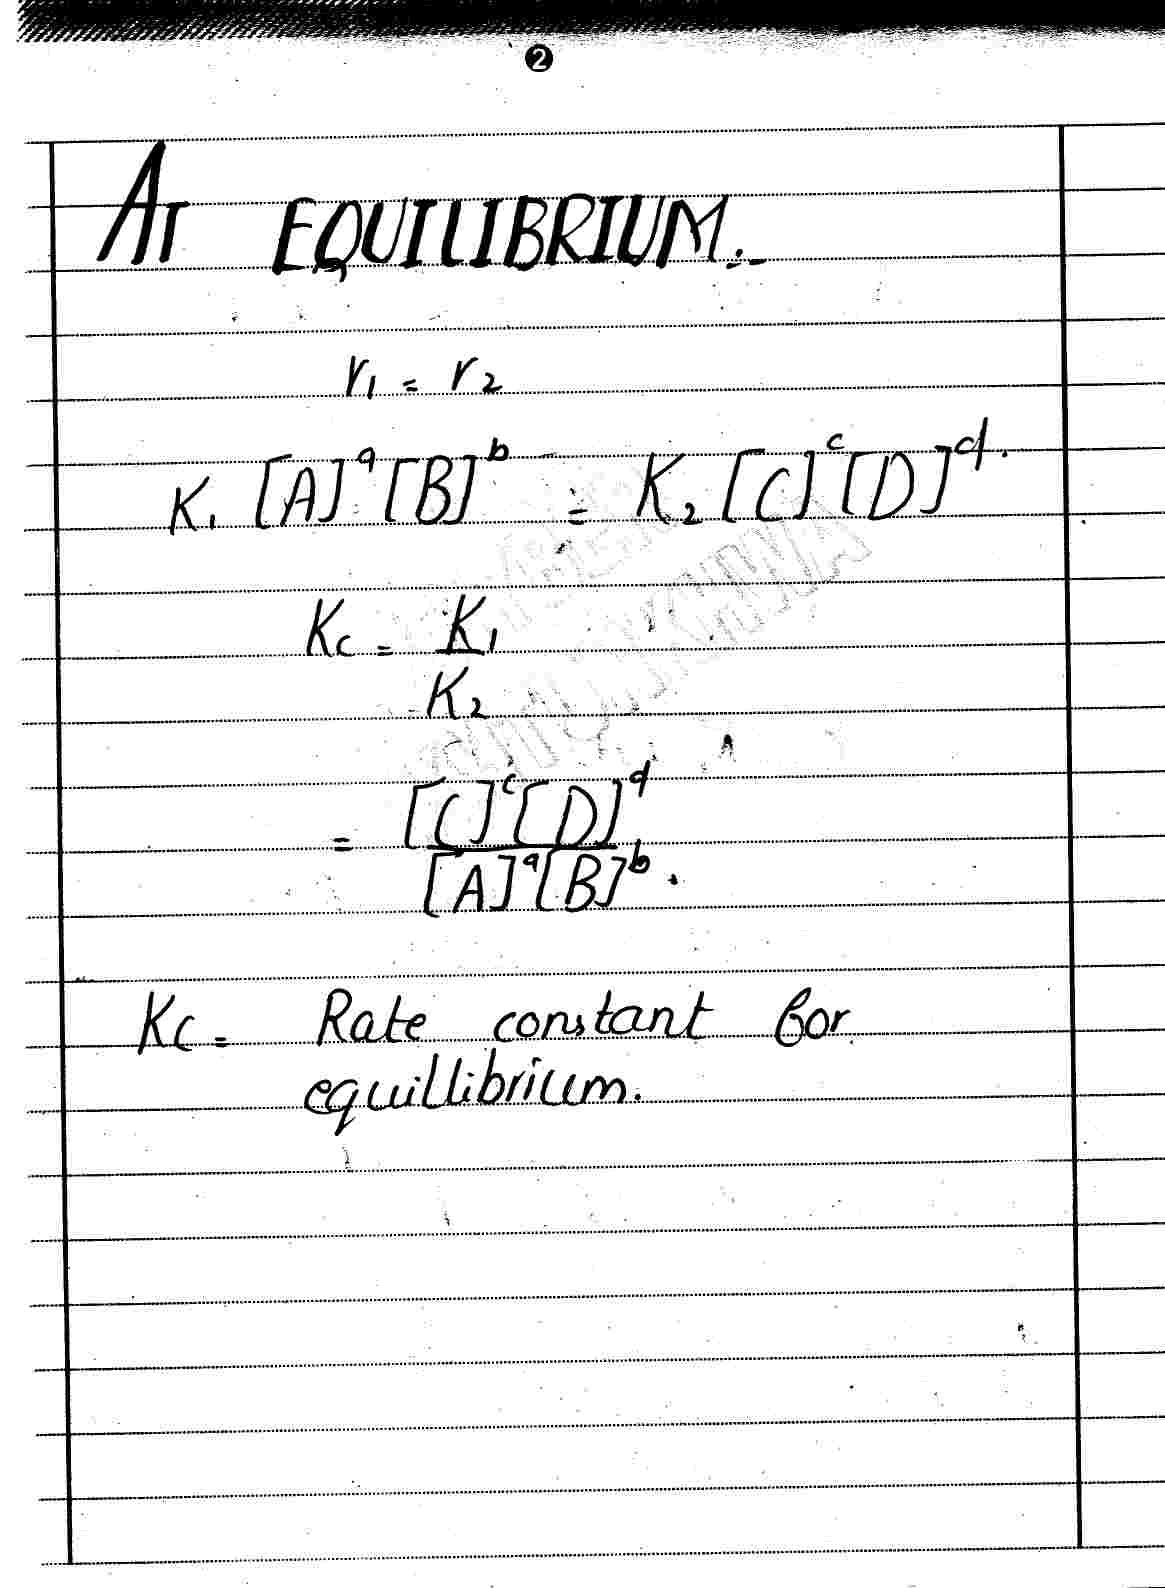 2
AT EQUILIBRIUM:-
r₁ = r₂
K₁ [A]ᵃ [B]ᵇ = K₂ [C]ᶜ [D]ᵈ.
Kc = K₁
K₂
= [C]ᶜ [D]ᵈ
[A]ᵃ [B]ᵇ.
Kc = Rate constant for
equillibrium.